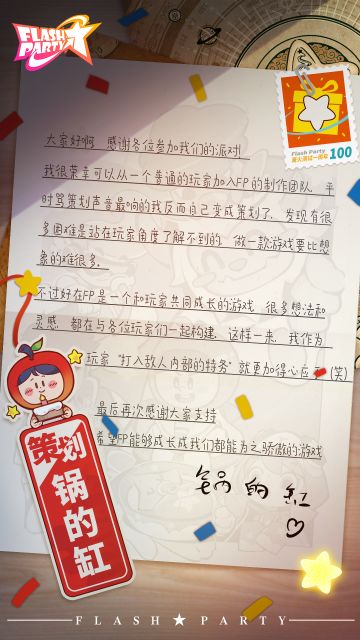 FLASH PARTY
Flash Party
100
大家好啊 感谢各位参加我们的派对!
我很荣幸可以从一个普通的玩家加入FP的制作团队 平
时骂策划声音最响的我反而自己变成策划了, 发现有很
多困难是站在玩家角度了解不到的. 做一款游戏要比想
象的难很多.
不过好在FP是一个和玩家共同成长的游戏, 很多想法和
灵感, 都在与各位玩家们一起构建, 这样一来, 我作为
玩家 "打入敌人内部的特务" 就更加得心应手 (笑)
最后再次感谢大家支持
希望FP能够成长成我们都能为之骄傲的游戏
锅的缸
策划
锅的缸
FLASH★PARTY